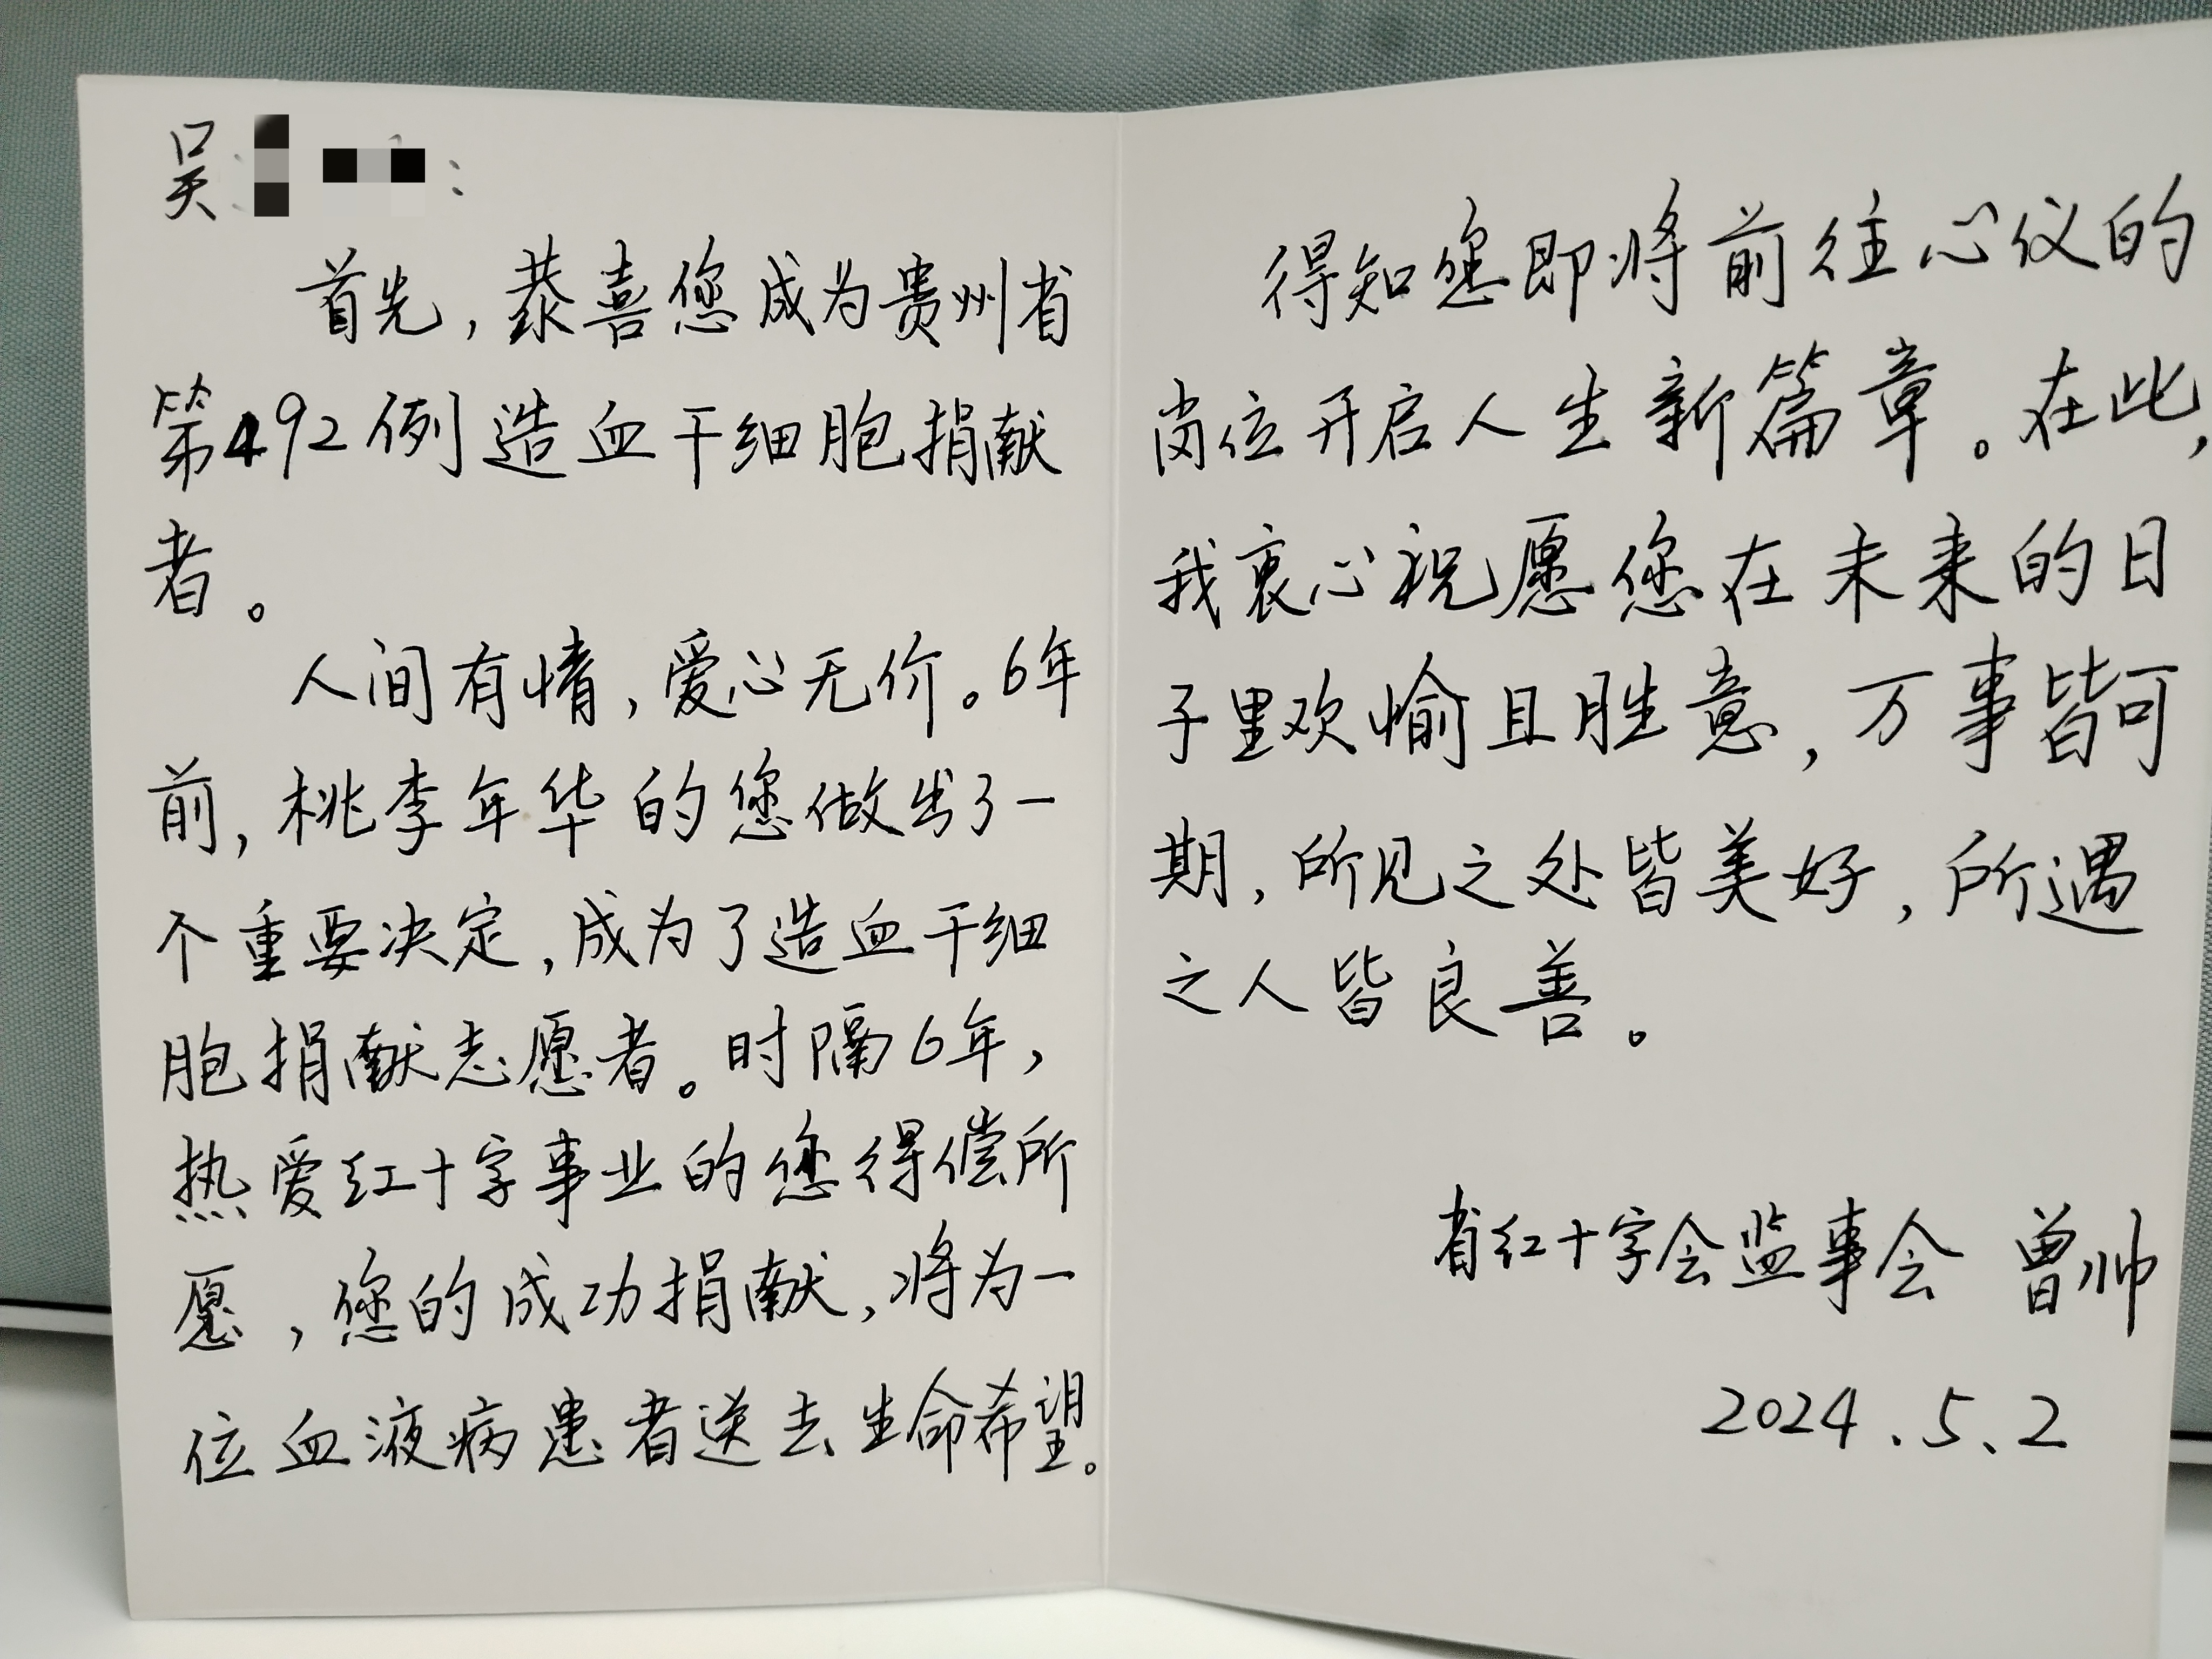 吴
首先，恭喜您成为贵州省
第492例造血干细胞捐献
者。
人间有情，爱心无价。6年
前，桃李年华的您做出了一
个重要决定，成为了造血干细
胞捐献志愿者。时隔6年，
热爱红十字事业的您得偿所
愿，您的成功捐献，将为一
位血液病患者送去生命希望。
得知您即将前往心仪的
岗位开启人生新篇章。在此，
我衷心祝愿您在未来的日
子里欢愉且胜意，万事皆可
期，所见之处皆美好，所遇
之人皆良善。
省红十字会监事会 曾帅
2024.5.2